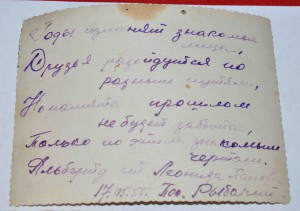 Годы изменят знакомые
лица,
Друзья разойдутся по
разным путям,
Но память о прошлом
не будет забыта,
Только по этим знакомым
чертам.
Альберту от Леонида
17.05.55. Пос. Рыбачий